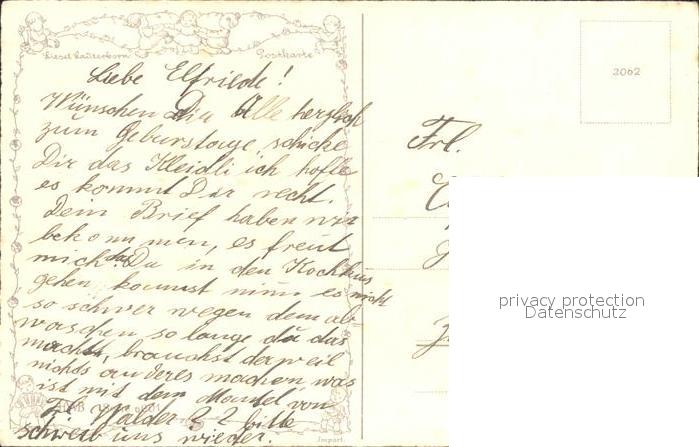 Liesel Lauterborn Postkarte
2062
Liebe Elfriede!
Wünschen Dir Alle herzlich
zum Geburstage, schicke
Dir das Kleidli ich hoffe
es kommt Dir recht.
Dein Brief haben wir
bekommen, es freut
mich das Du in den Kochkurs
gehen kannst nimm es nicht
so schwer wegen dem ab
waschen so lange du das
machst, brauchst derweil
nichts anderes machen, was
ist mit dem Mantel von
Walder?? bitte
schreib uns wieder.
Frl.
privacy protection
Datenschutz
Import